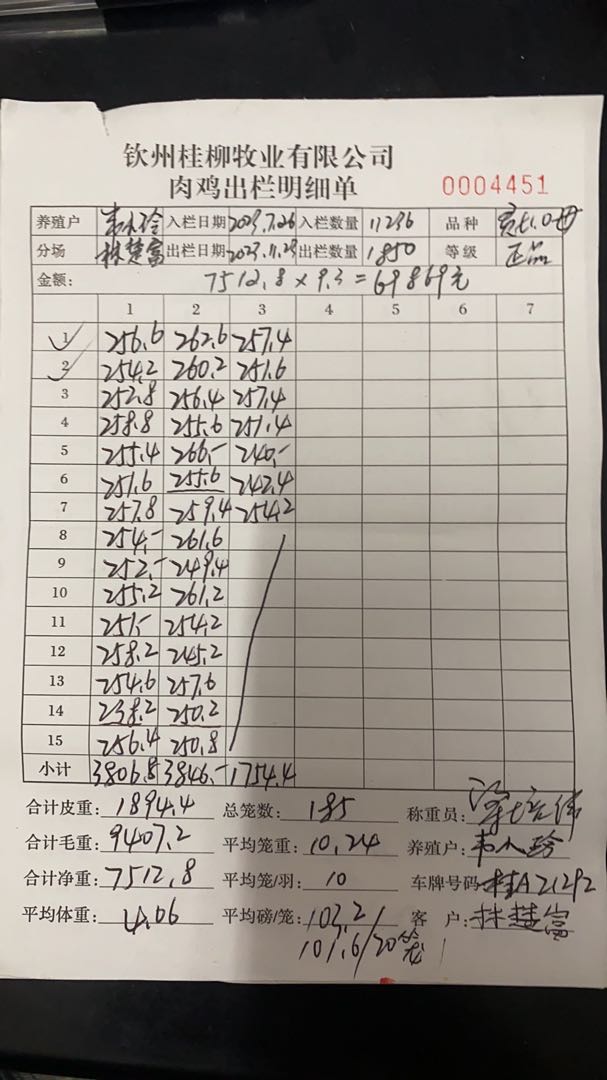 钦州桂柳牧业有限公司
肉鸡出栏明细单 0004451
养殖户 韦人玲 入栏日期 2023.7.26 入栏数量 11236 品种
分场 林楚富 出栏日期 2023.11.23 出栏数量 1850 等级 正品
金额: 7512.8×9.3=69869元
1 2 3 4 5 6 7
1 256.6 262.6 257.4
2 254.2 260.2 251.6
3 252.8 256.4 257.4
4 258.8 255.6 251.4
5 255.4 266.- 240.-
6 251.6 255.6 242.4
7 257.8 259.4 254.2
8 254.- 261.6
9 252.- 249.4
10 255.2 261.2
11 251.- 254.2
12 258.2 245.2
13 254.6 257.6
14 238.2 250.2
15 256.4 250.8
小计 3806.8 3846.- 1754.4
合计皮重: 1894.4 总笼数: 185 称重员:
合计毛重: 9407.2 平均笼重: 10.24 养殖户: 韦人玲
合计净重: 7512.8 平均笼/羽: 10 车牌号码 桂A21292
平均体重: 4.06 平均磅/笼: 103.2/ 客 户: 林楚富
101.6/20笼